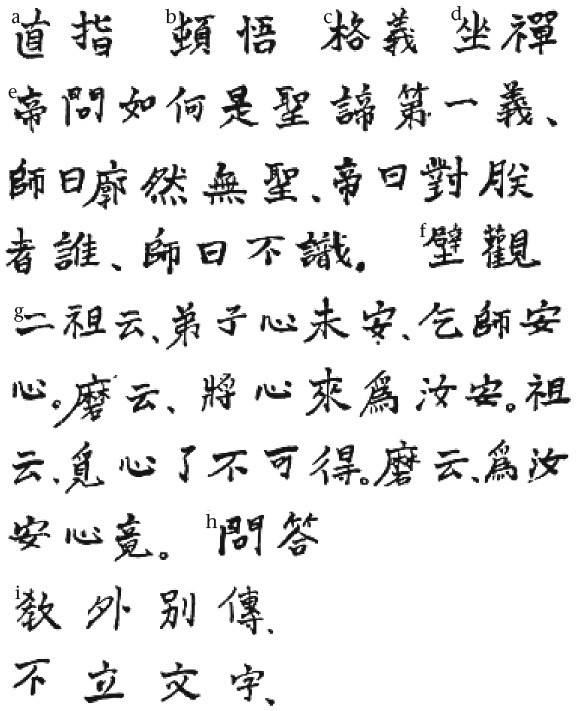 a直指 b頓悟 c格義 d坐禪
e帝問如何是聖諦第一義、
師曰廓然無聖、帝曰對朕
者誰、師曰不識。 f壁觀
g二祖云、弟子心未安、乞師安
心。磨云、將心來爲汝安。祖
云、覓心了不可得。磨云、爲汝
安心竟。 h問答
i敎外別傳、
不立文字、